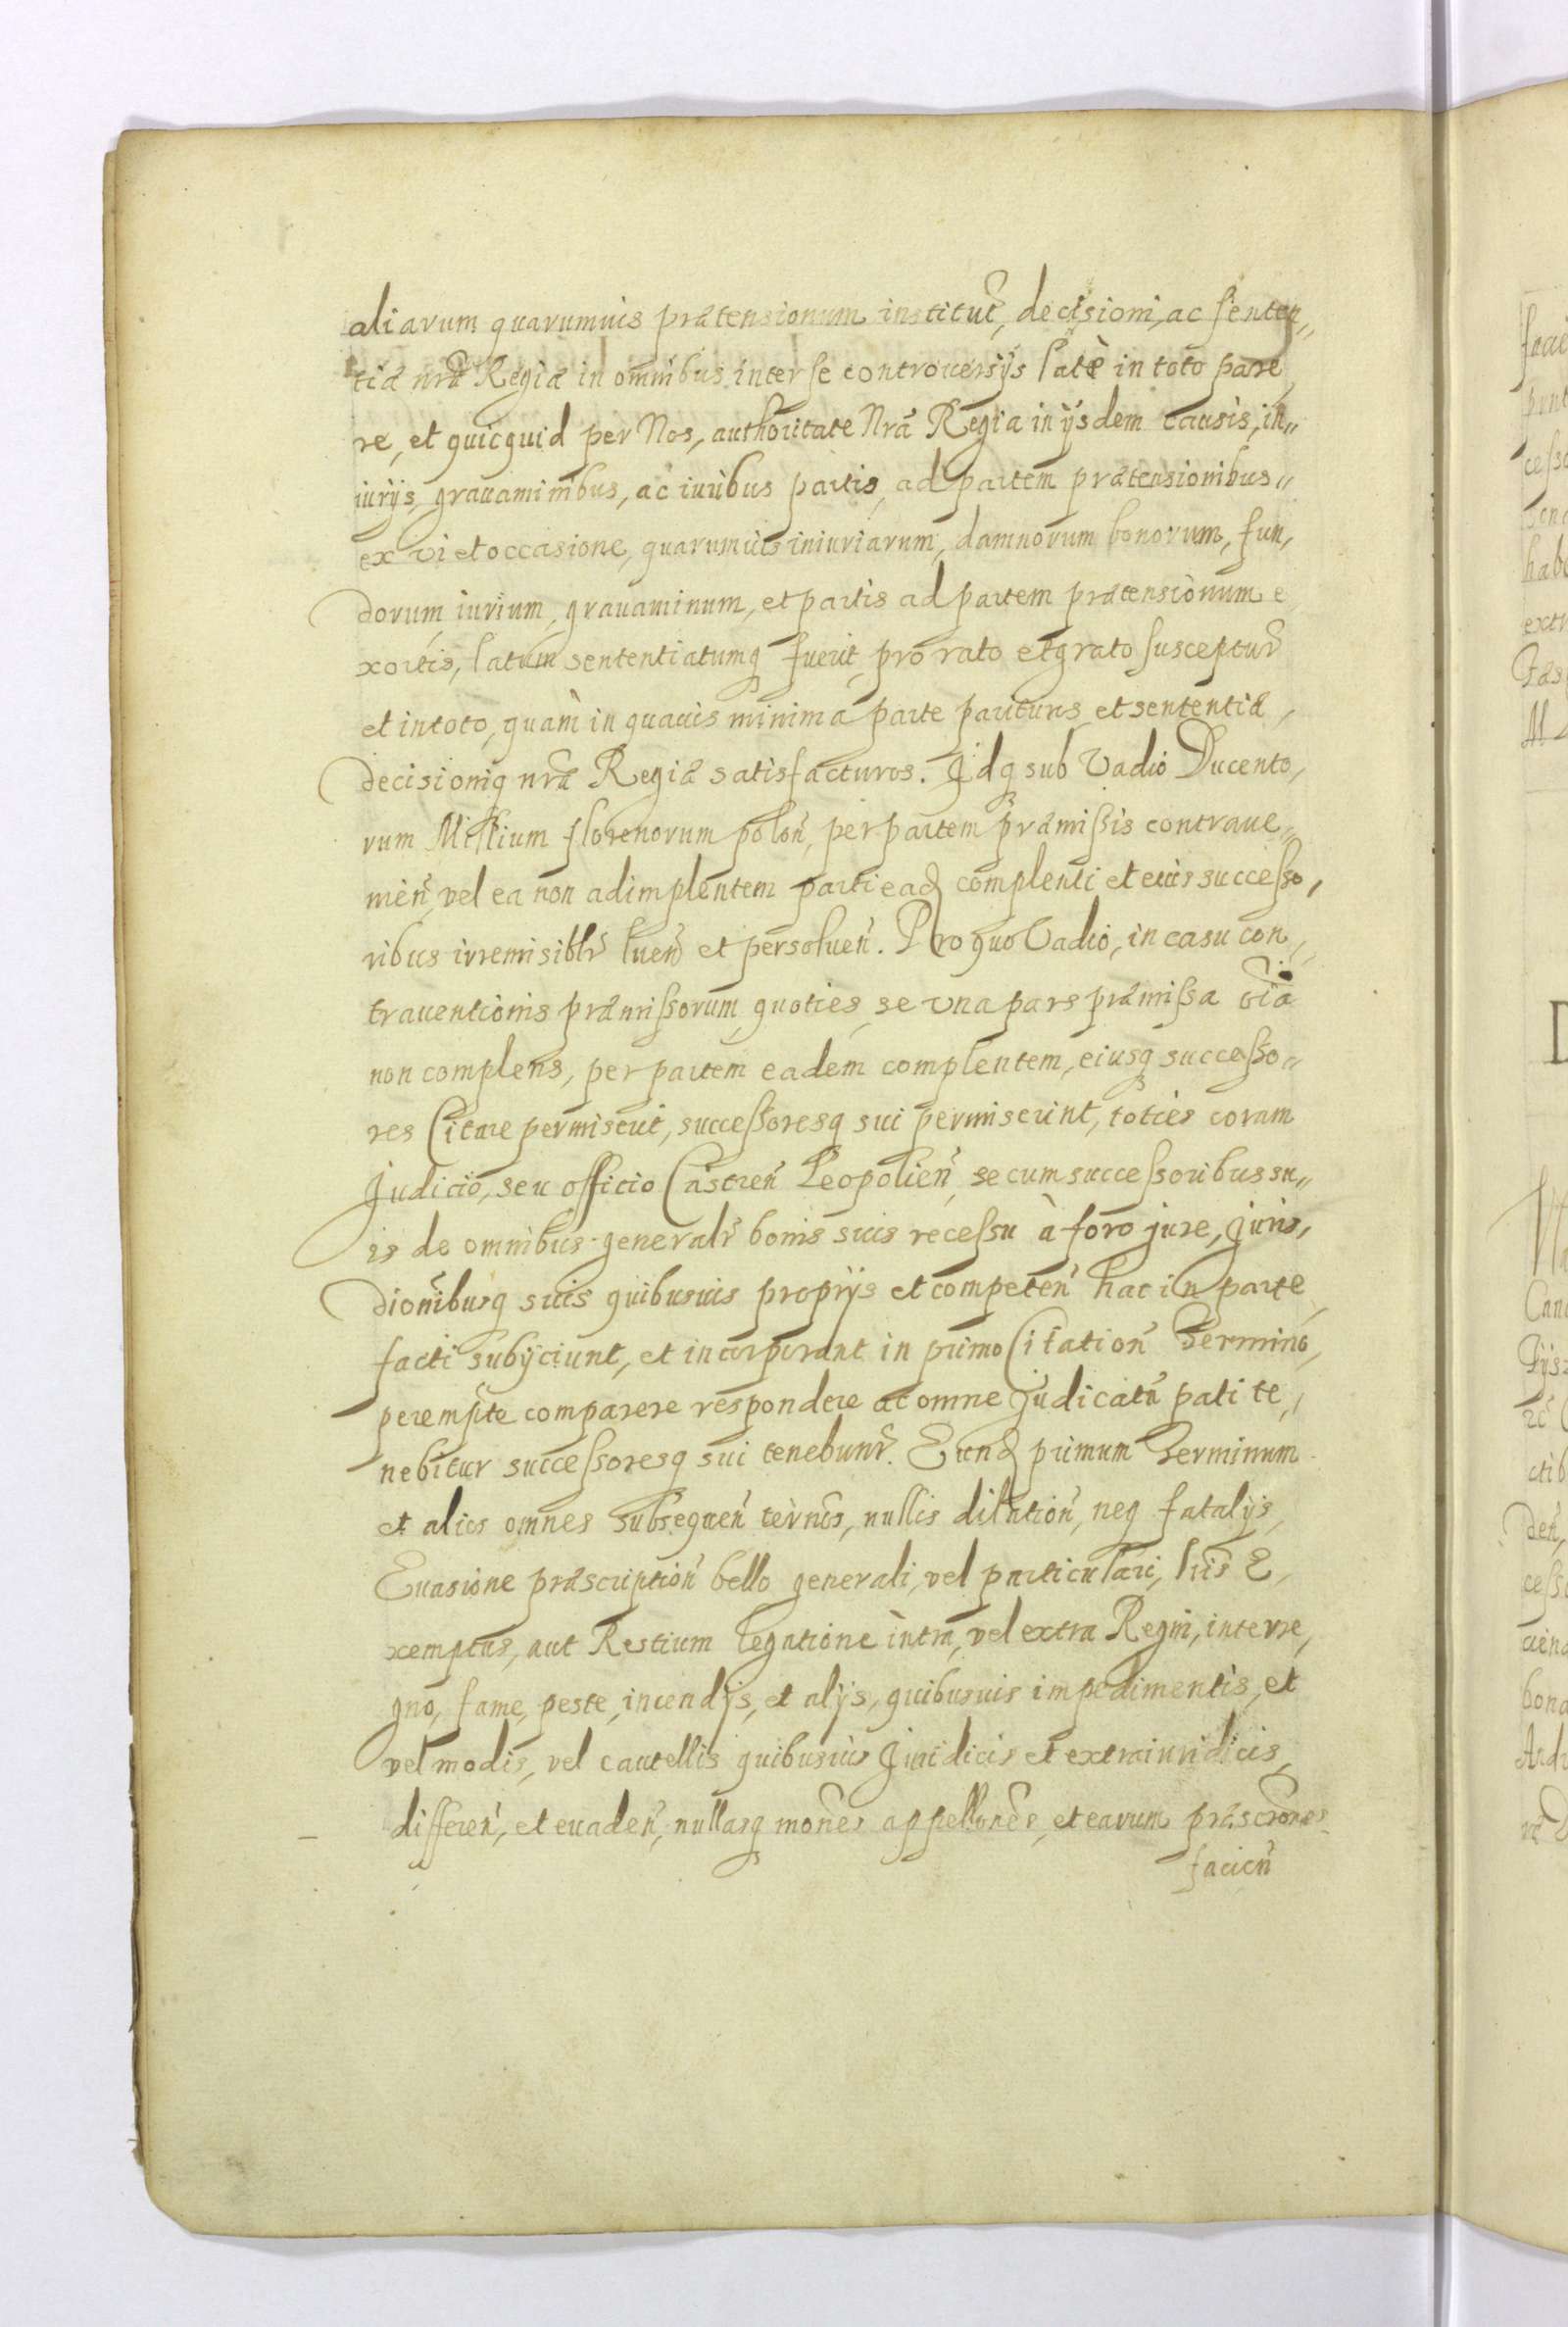 aliarum quarumuis prætensionum institut̃, decisioni, ac senten„
tiæ nræ̃ Regiæ in omnibus inter se controuersijs latè in toto pare
re, et quicquid per Nos, authoritate Nrã Regia in ijsdem causis, in„
iurijs, grauaminibus, ac iuribus partis, ad partem prætensionibus„
ex vi et occasione, quarumuis iniuriarum, damnorum bonorum, fun,
dorum, iurium, grauaminum, et partis ad partem prætensionum e
xortis, latum sententiatumq fuerit, pro rato et grato susceptur̃
et in toto, quàm in quauis minima parte parituris, et sententiæ,
decisioniq nræ̃ Regiæ satisfacturos. Idq sub Vadio Ducento,
rum Millium florenorum polon̄, per partem præmissis contraue„
nien̄, vel ea non adimplentem parti ead complenti et eius successo,
ribus irremisiblr̃ luen̄ et persoluen̄. Pro quo Vadio, in casu con,
trauentionis præmissorum, quoties, se vna pars præmissa oĩa
non complens, per partem eadem complentem, eiusq successo„
res Citare permiserit, successoresq sui permiserint, toties coram
Judicio, seu officio Castren̄ Leopolien̄, se cum successoribus su„
is de omnibus generalr̃ bonis suis recessu à foro jure, juris,
dionĩbusq suis quibusuis proprijs et competen̄ hac in parte
facti subijciunt, et incorporant in primo Citation̄ Termino,
perempt̃e comparere respondere ac omne Judicatũ pati te,
nebitur successoresq sui tenebunr̃. Eund primum Terminum
et alios omnes subsequen̄ ternos, nullis dilation̄, neq fatalijs,
Euasione præscription̄ bello generali, vel particulari, huis E,
xemptus, aut Restium legatione intra, vel extra Regni, interre,
gno, fame, peste, incendijs, et alijs, quibusuis impedimentis, et
vel modis, vel cautellis quibusuis Juridicis et extraiuridicis,
differen̄, et euaden̄, nullasq mones̃ appellones̃, et earum præscrones̃
facien̄